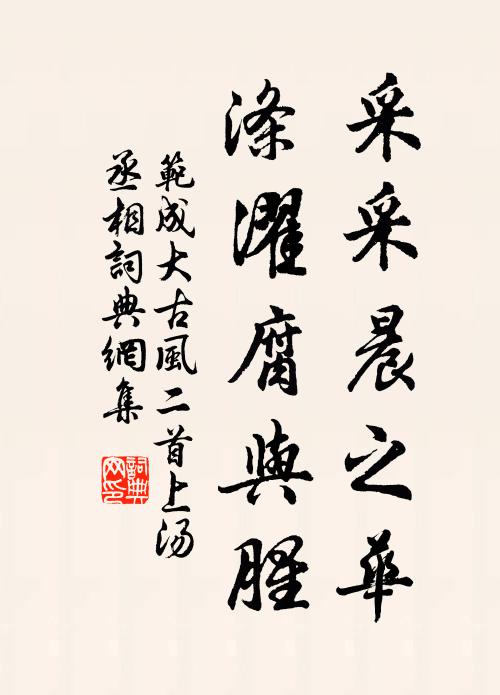 采采晨之華
滌濯腐與腥
範成大古風二首上湯
丞相詞典網集
詞典网印